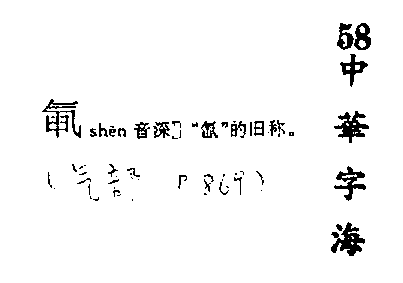 58中華字海
氠 shēn 音深］“氙”的旧称。
(气部 P 869)